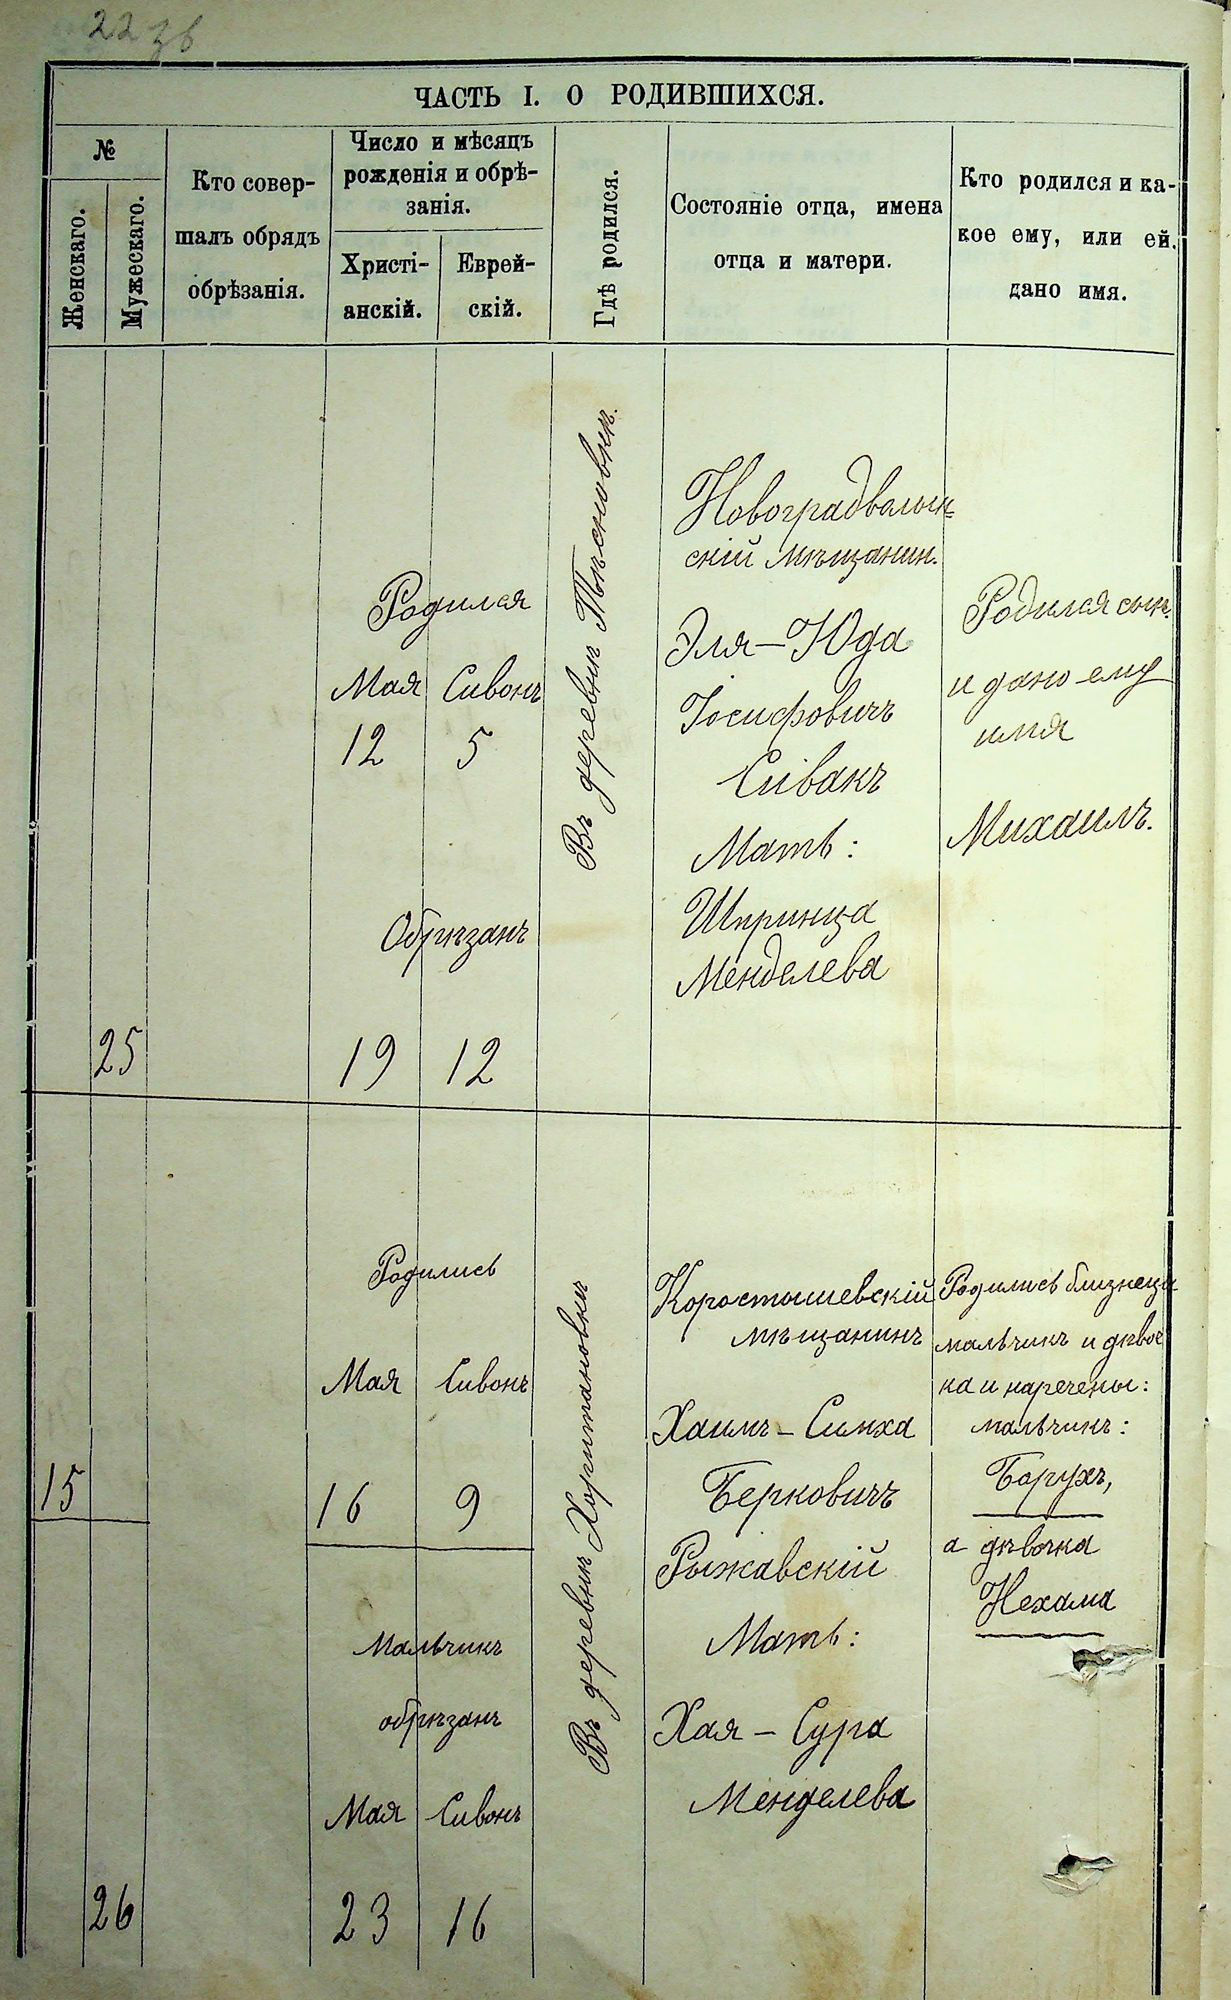 22 зв
ЧАСТЬ I. О РОДИВШИХСЯ.
№
Женскаго.
Мужескаго.
Кто совер-
шалъ обрядъ
обрѣзанія.
Число и мѣсяцъ
рожденія и обрѣ-
занія.
Христі-
анскій.
Еврей-
скій.
Гдѣ родился.
Состояніе отца, имена
отца и матери.
Кто родился и ка-
кое ему, или ей,
дано имя.
25
Родился
Мая Сивонъ
12 5
Обрѣзанъ
19 12
Въ деревнѣ
Новоградволын-
скій мѣщанин.
Эля-Юда
Іосифовичъ
Сивакъ
Мать:
Шпринца
Менделева
Родился сынъ
и дано ему
имя
Михаилъ.
15
26
Родились
Мая Сивонъ
16 9
Мальчикъ
обрѣзанъ
Мая Сивонъ
23 16
Въ деревнѣ Харитановкѣ
Коростышевскій
мѣщанинъ
Хаимъ-Симха
Берковичъ
Рыжавскій
Мать:
Хая-Сура
Менделева
Родились близнецы
мальчикъ и дѣвоч
ка и наречены:
мальчикъ:
Борухъ,
а дѣвочка
Нехама